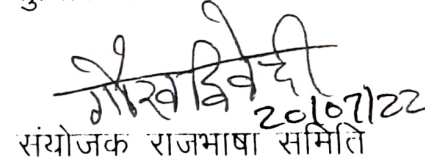 गौरव द्विवेदी
20/07/22
संयोजक राजभाषा समिति